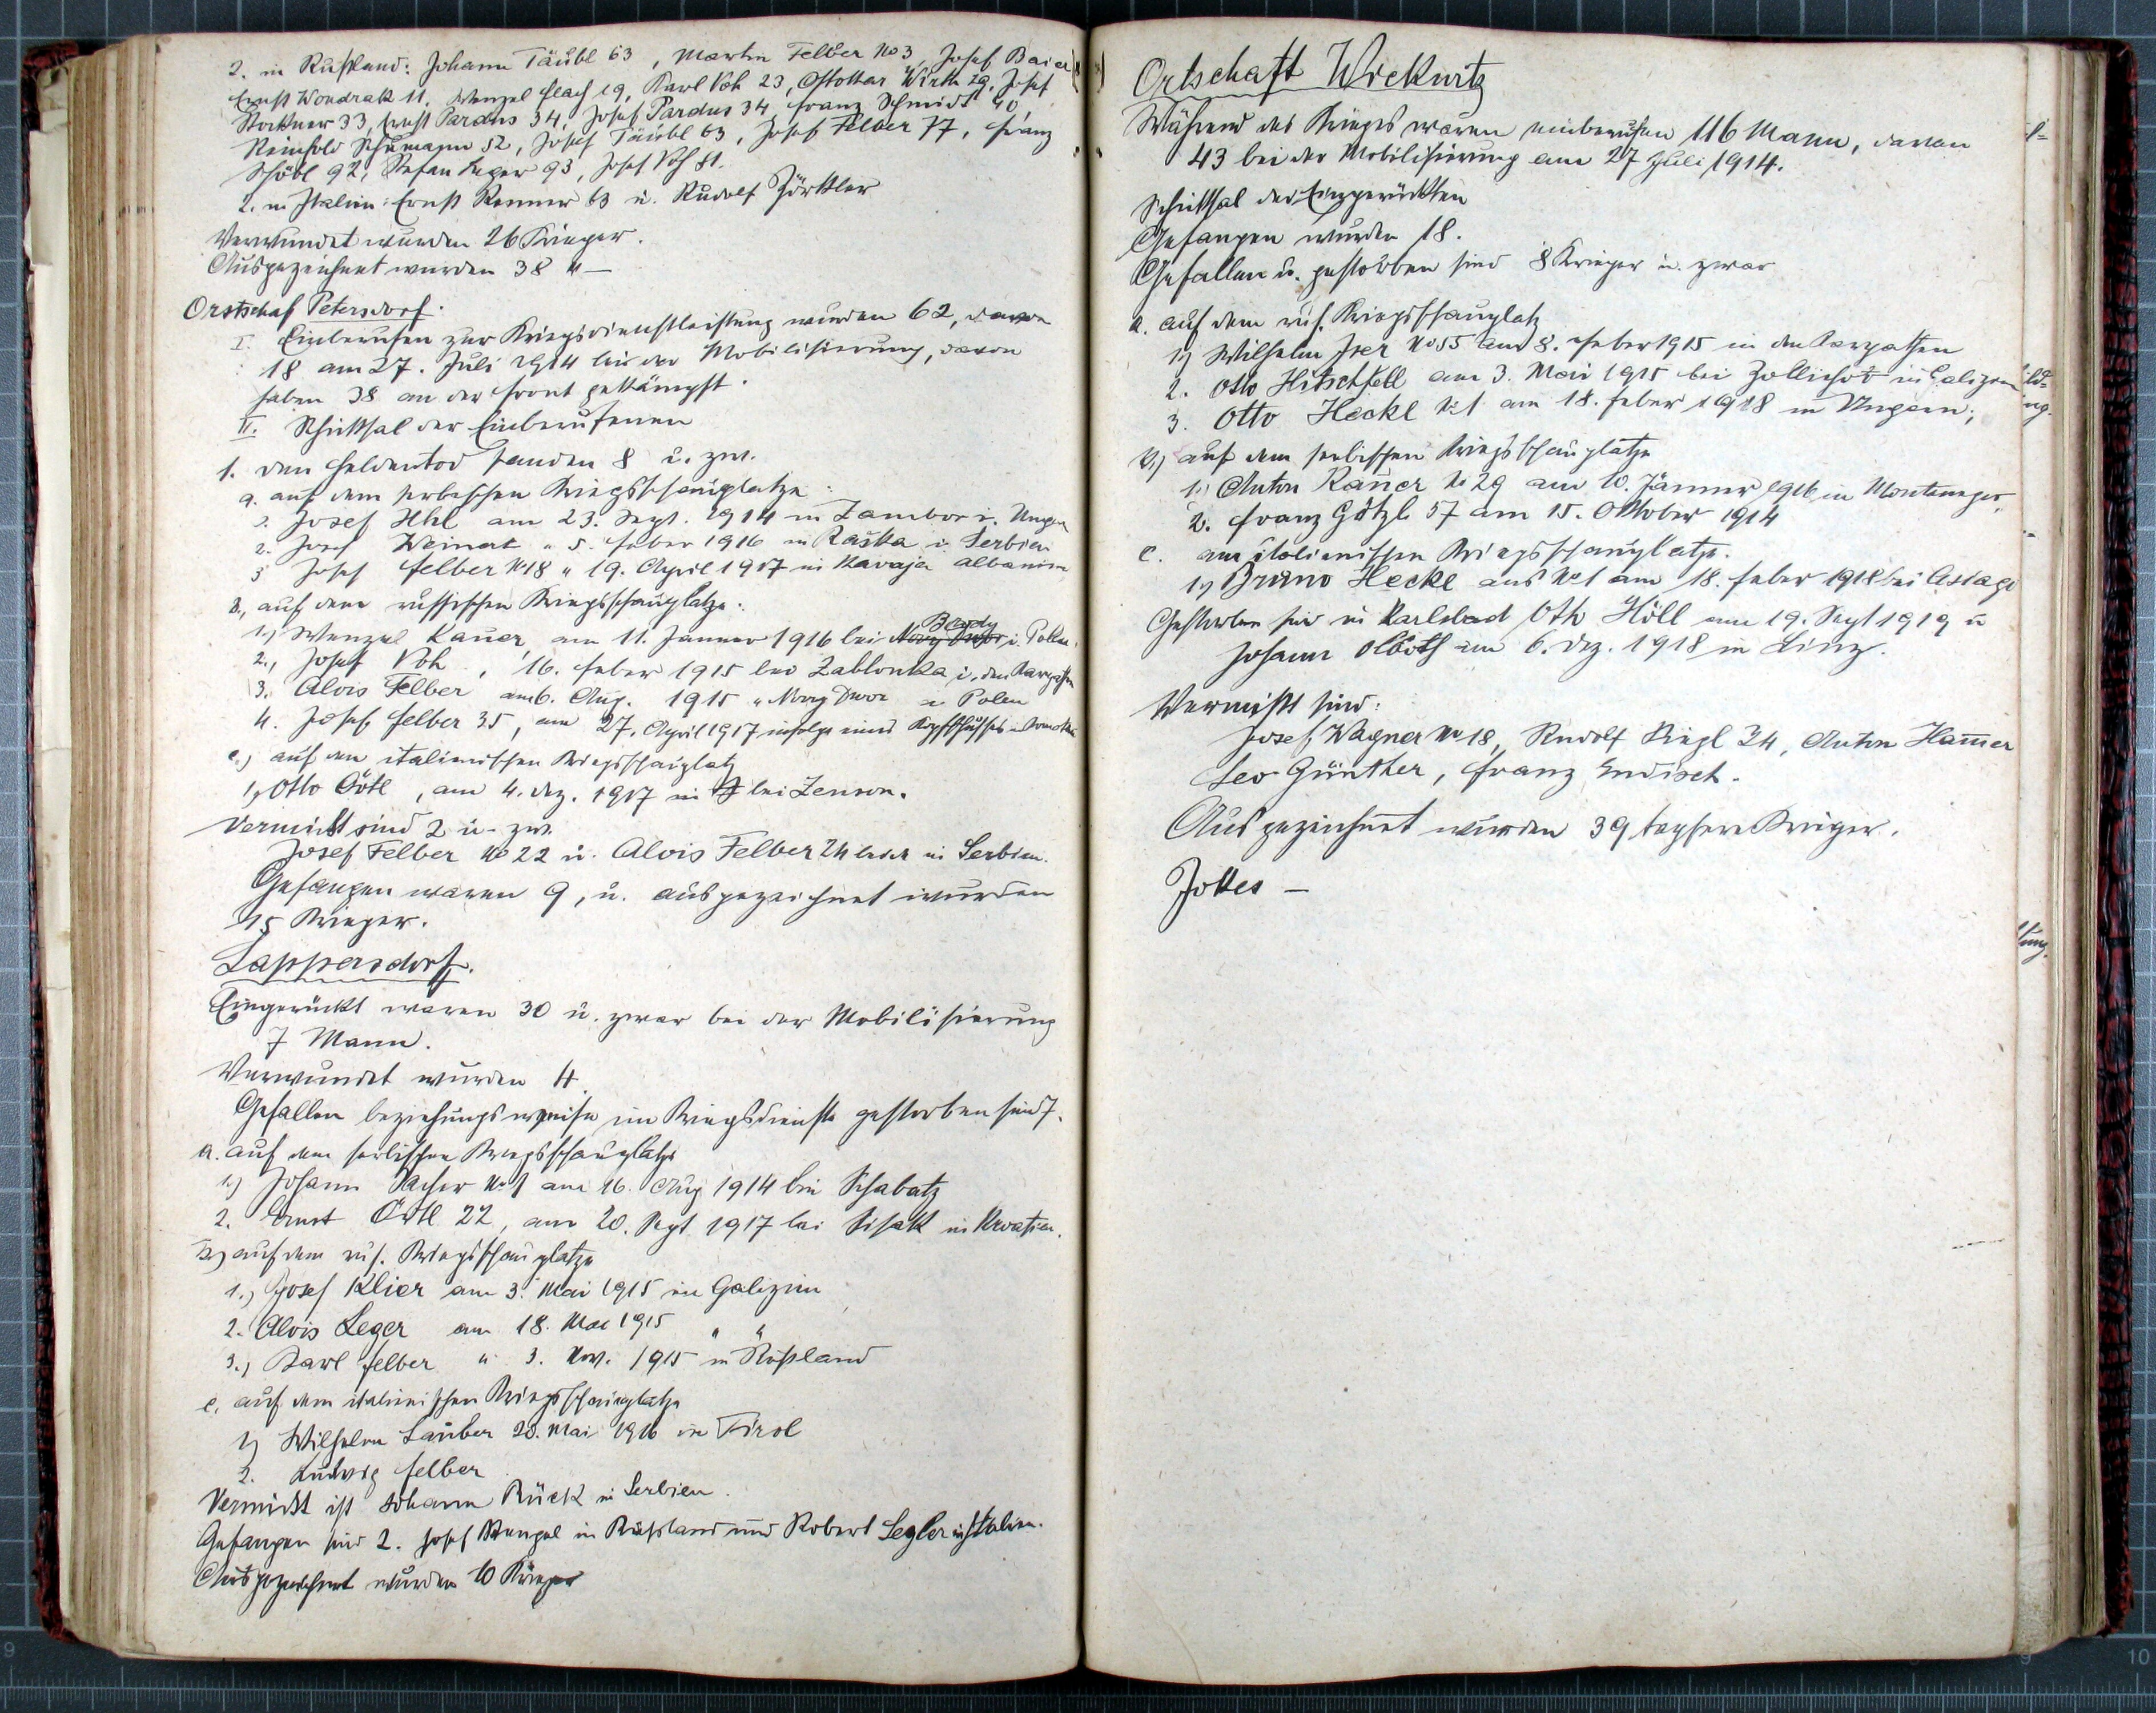 2. in Rußland: Johann Täubl 63, Martin Felber No 3, Josef Baier
Ernst Wondrak 11, Wenzel 19, Karl Voh 23, Ottokar Wirth 29, Josef
Stockner 33, Ernst Pardus 34, Josef Pardus 34, Franz Schmidt 40,
Reinhold Schumann 52, Josef Täubl 63, Josef Felber 77, Franz
Schöbl 92, Stefan Leger 93, Josef Voh 81.
2. in Italien: Ernst Renner 63 u. Rudolf Zörkler
Verwundet wurden 26 Krieger.
Ausgezeichnet wurden 38 "—
Orstschaf Petersdorf.
I. Einberufen zur Kriegsdienstleistung wurden 62, davon
18 am 27. Juli 1914 bei der Mobilisierung, davon
haben 38 an der Front gekämpft.
II. Schicksal der Einberufenen
1. den Heldentod fanden 8 u. zw.
a. auf dem serbischen Kriegsschauplatze:
1. Josef Uhl am 23. Sept. 1914 in Zambor i. Ungarn
2. Josef Weinert " 5. Feber 1916 in Raska i. Serbien
3 Josef Felber No 18 " 19. April 1917 in Kavaja Albanien
B., auf dem russischen Kriegsschauplatze.
1.) Wenzel Kauer, am 11. Jänner 1916 bei Nowy Dwor i. Polen.
2., Josef Voh, 16. Feber 1915 bei Zablonka i. den Karpathen
3. Alois Felber am 6. Aug. 1915 " Nowy Dwor in Polen
4. Josef Felber 35, am 27. April 1917 infolge eines Kopfschusses
c.) auf dem italienischen Kriegsschauplatz
1., Otto Örtl, am 4. Dez. 1917 in bei Zenson.
Vermißt sind 2 u. zw.
Josef Felber No 22 u. Alois Felber 24 beide in Serbien.
Gefangen waren 9, u. ausgezeichnet wurden
15 Krieger.
Lappersdorf.
Eingerückt waren 30 u. zwar bei der Mobilisierung
7 Mann.
Verwundet wurden 4.
Gefallen beziehungsweise im Kriegsdienste gestorben sind 7.
a. auf dem serbischen Kriegsschauplatze
1.) Johann No 1 am 16. Aug 1914 bei Schabatz
2. Ernst Örtl 22, am 20. Sept 1917 bei Sisak in Kroatien.
b.) auf dem rus. Kriegsschauplatze
1.) Josef Klier am 3. Mai 1915 in Galizien
2. Alois Leger am 18. Mai 1915 " "
3.) Karl Felber " 3. Nov. 1915 in Rußland
c. auf dem italienischen Kriegsschauplatze
1) Wilhelm Lauber 20. Mai 1916 in Tirol
2. Ludwig Felber
Vermißt ist Johann Rück in Serbien.
Gefangen sind 2. Josef Stengel in Rußland und Robert Legler in Italien.
Ausgezeichnet wurden 10 Krieger
Ortschaft Wickwitz
Während des Krieges waren einberufen 116 Mann, davon
43 bei der Mobilisierung am 27 Juli 1914.
Schicksal der Eingerückten
Gefangen wurden 18.
Gefallen u. gestorben sind 8 Krieger u. zwar
a. auf dem rus. Kriegsschauplatz
1) Wilhelm Iser No 55 am 8. Feber 1915 in den Karpathen
2. Otto Hitschfell am 3. Mai 1915 bei in Galizien
3. Otto Heckl No 1 am 18. Feber 1918 in Ungarn;
b.) auf dem serbischen Kriegsschauplatze
1.) Anton Kauer No 29 am 10. Jänner 1916 in Montenegro,
2. Franz Götzl 57 am 15. Oktober 1914
c. am italienischen Kriegsschauplatze.
1.) Bruno Heckl aus No 1 am 18. Feber 1918 bei Assiago
Gestorben sind in Karlsbad Otto Höll am 19. Sept 1919 u
Johann am 6. Dez. 1918 in Linz.
Vermißt sind:
Josef Wagner No 18, Rudolf 34, Anton Hammer
Leo Günther, Franz Endisch.
Ausgezeichnet wurden 39 tapfere Krieger.
Jokes —
9
9
10